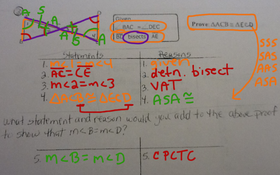 A S
A
Given:
① m<A≅ m<C
② bisects
Prove ΔACB≅ΔECD
SSS
SAS
AAS
ASA
Statements Reasons
1. 1. given
2. AE=CE 2. defn. bisect
3. m<2=m<3 3. VAT
4. 4. ASA ≅
what statement and reason would you add to the above proof
to show that m<B=m<D?
5. m<B=m<D 5. CPCTC